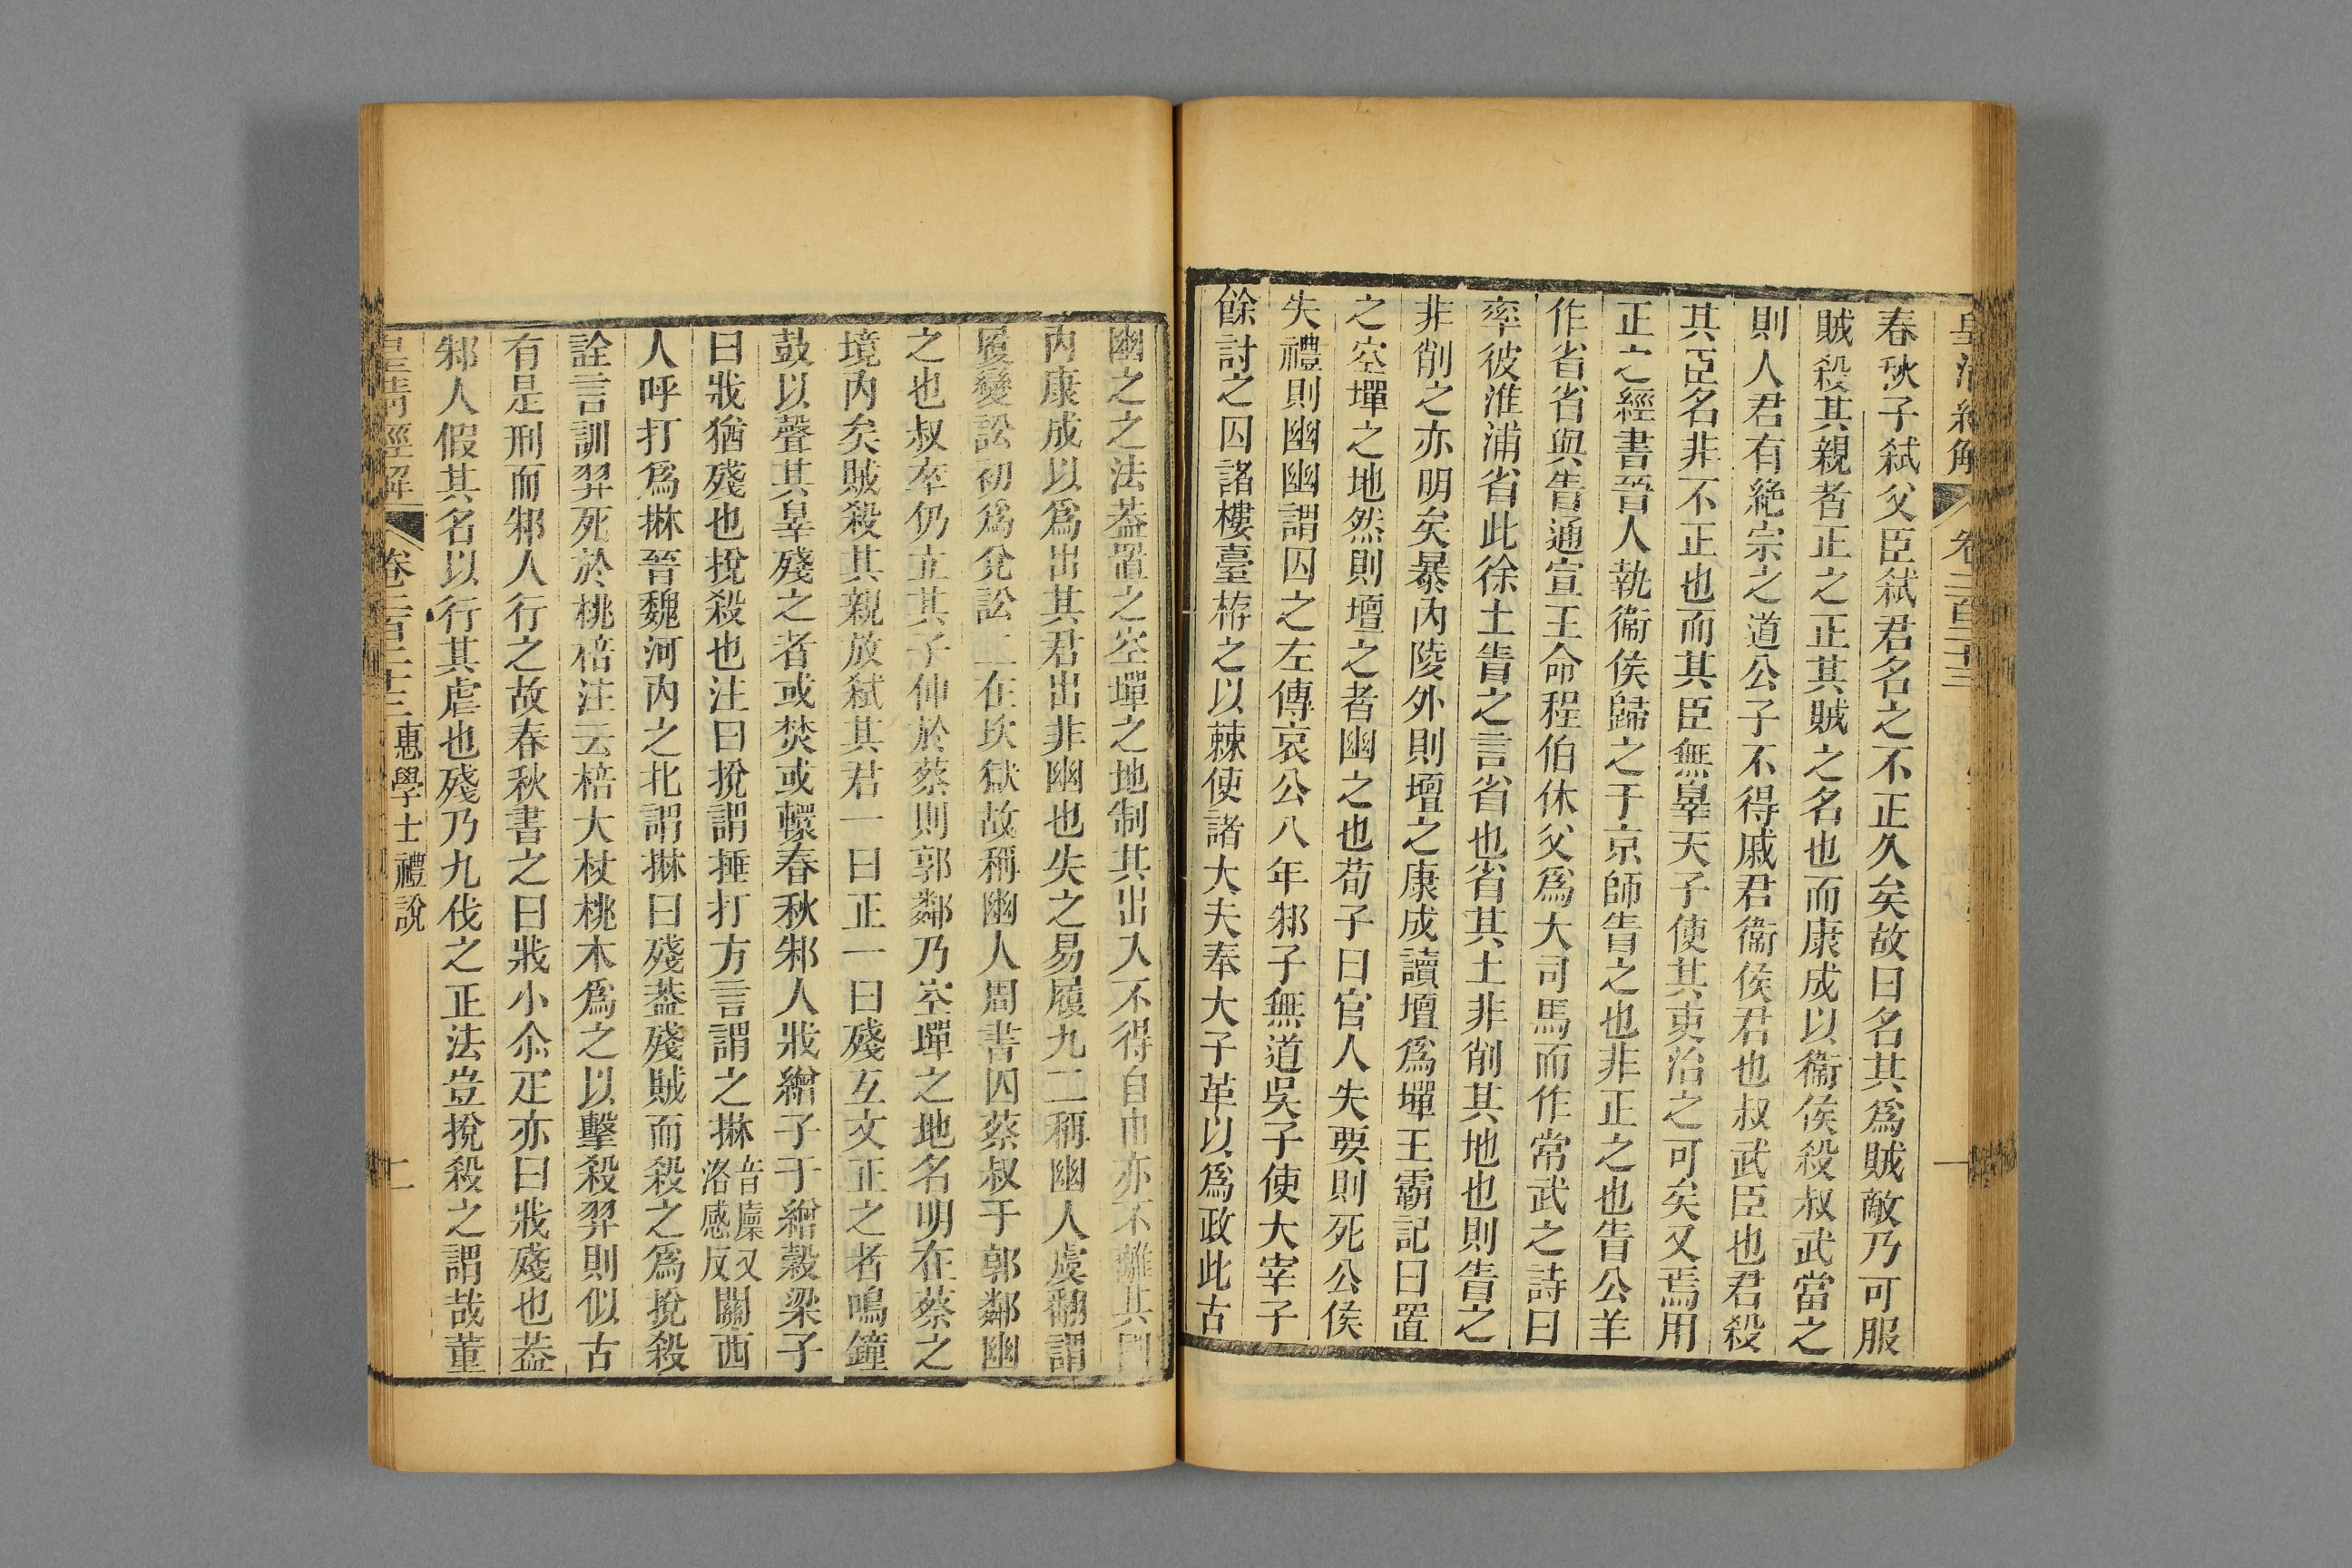 皇清經解 卷二百二十三 一
春秋子弑父臣弑君名之不正久矣故曰名其爲賊敵乃可服
賊殺其親者正之正其賊之名也而康成以衞侯殺叔武當之
則人君有絶宗之道公子不得戚君衞侯君也叔武臣也君殺
其臣名非不正也而其臣無辠天子使其吏治之可矣又焉用
正之經書晉人執衞侯歸之于京師眚之也非正之也告公羊
作省省與眚通宣王命程伯休父爲大司馬而作常武之詩曰
率彼淮浦省此徐土眚之言省也省其土非削其地也則眚之
非削之亦明矣暴內陵外則壇之康成讀壇爲墠王霸記曰置
之空墠之地然則壇之者幽之也荀子曰官人失要則死公侯
失禮則幽幽謂囚之左傳哀公八年邾子無道吳子使大宰子
餘討之囚諸樓臺栫之以棘使諸大夫奉大子革以爲政此古
幽之之法葢置之空墠之地制其出入不得自由亦不離其門
內康成以爲出其君出非幽也失之易履九二稱幽人虞翻謂
履變訟初爲兌訟二在坎獄故稱幽人周書囚蔡叔于郭鄰幽
之也叔卒仍立其子仲於蔡則郭鄰乃空墠之地名明在蔡之
境內矣賊殺其親放弑其君一曰正一曰殘互文正之者鳴鐘
鼓以聲其辠殘之者或焚或轘春秋邾人戕繒子于繒穀梁子
曰戕猶殘也捝殺也注曰捝謂捶打方言謂之惏音廩又洛感反關西
人呼打爲惏晉魏河內之北謂惏曰殘葢殘賊而殺之爲捝殺
詮言訓羿死於桃棓注云棓大杖桃木爲之以擊殺羿則似古
有是刑而邾人行之故春秋書之曰戕小尒疋亦曰戕殘也葢
邾人假其名以行其虐也殘乃九伐之正法豈捝殺之謂哉董
皇清經解 卷二百二十三 惠學士禮說 二